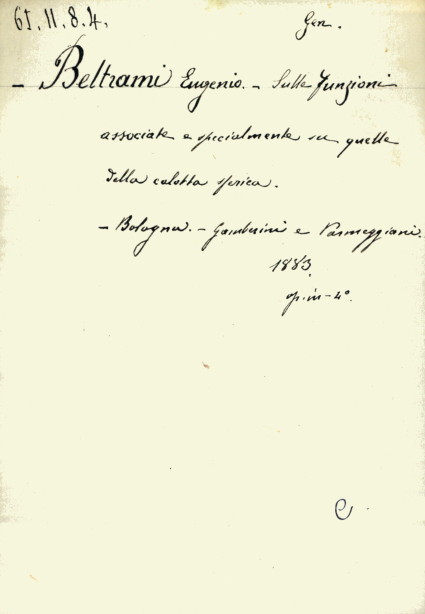 61. 11. 8. 4.
Gen.
- Beltrami Eugenio. - Sulle funzioni
associate e specialmente su quelle
della calotta sferica.
- Bologna. - Gamberini e Parmeggiani.
1883.
op. in-4º.
C